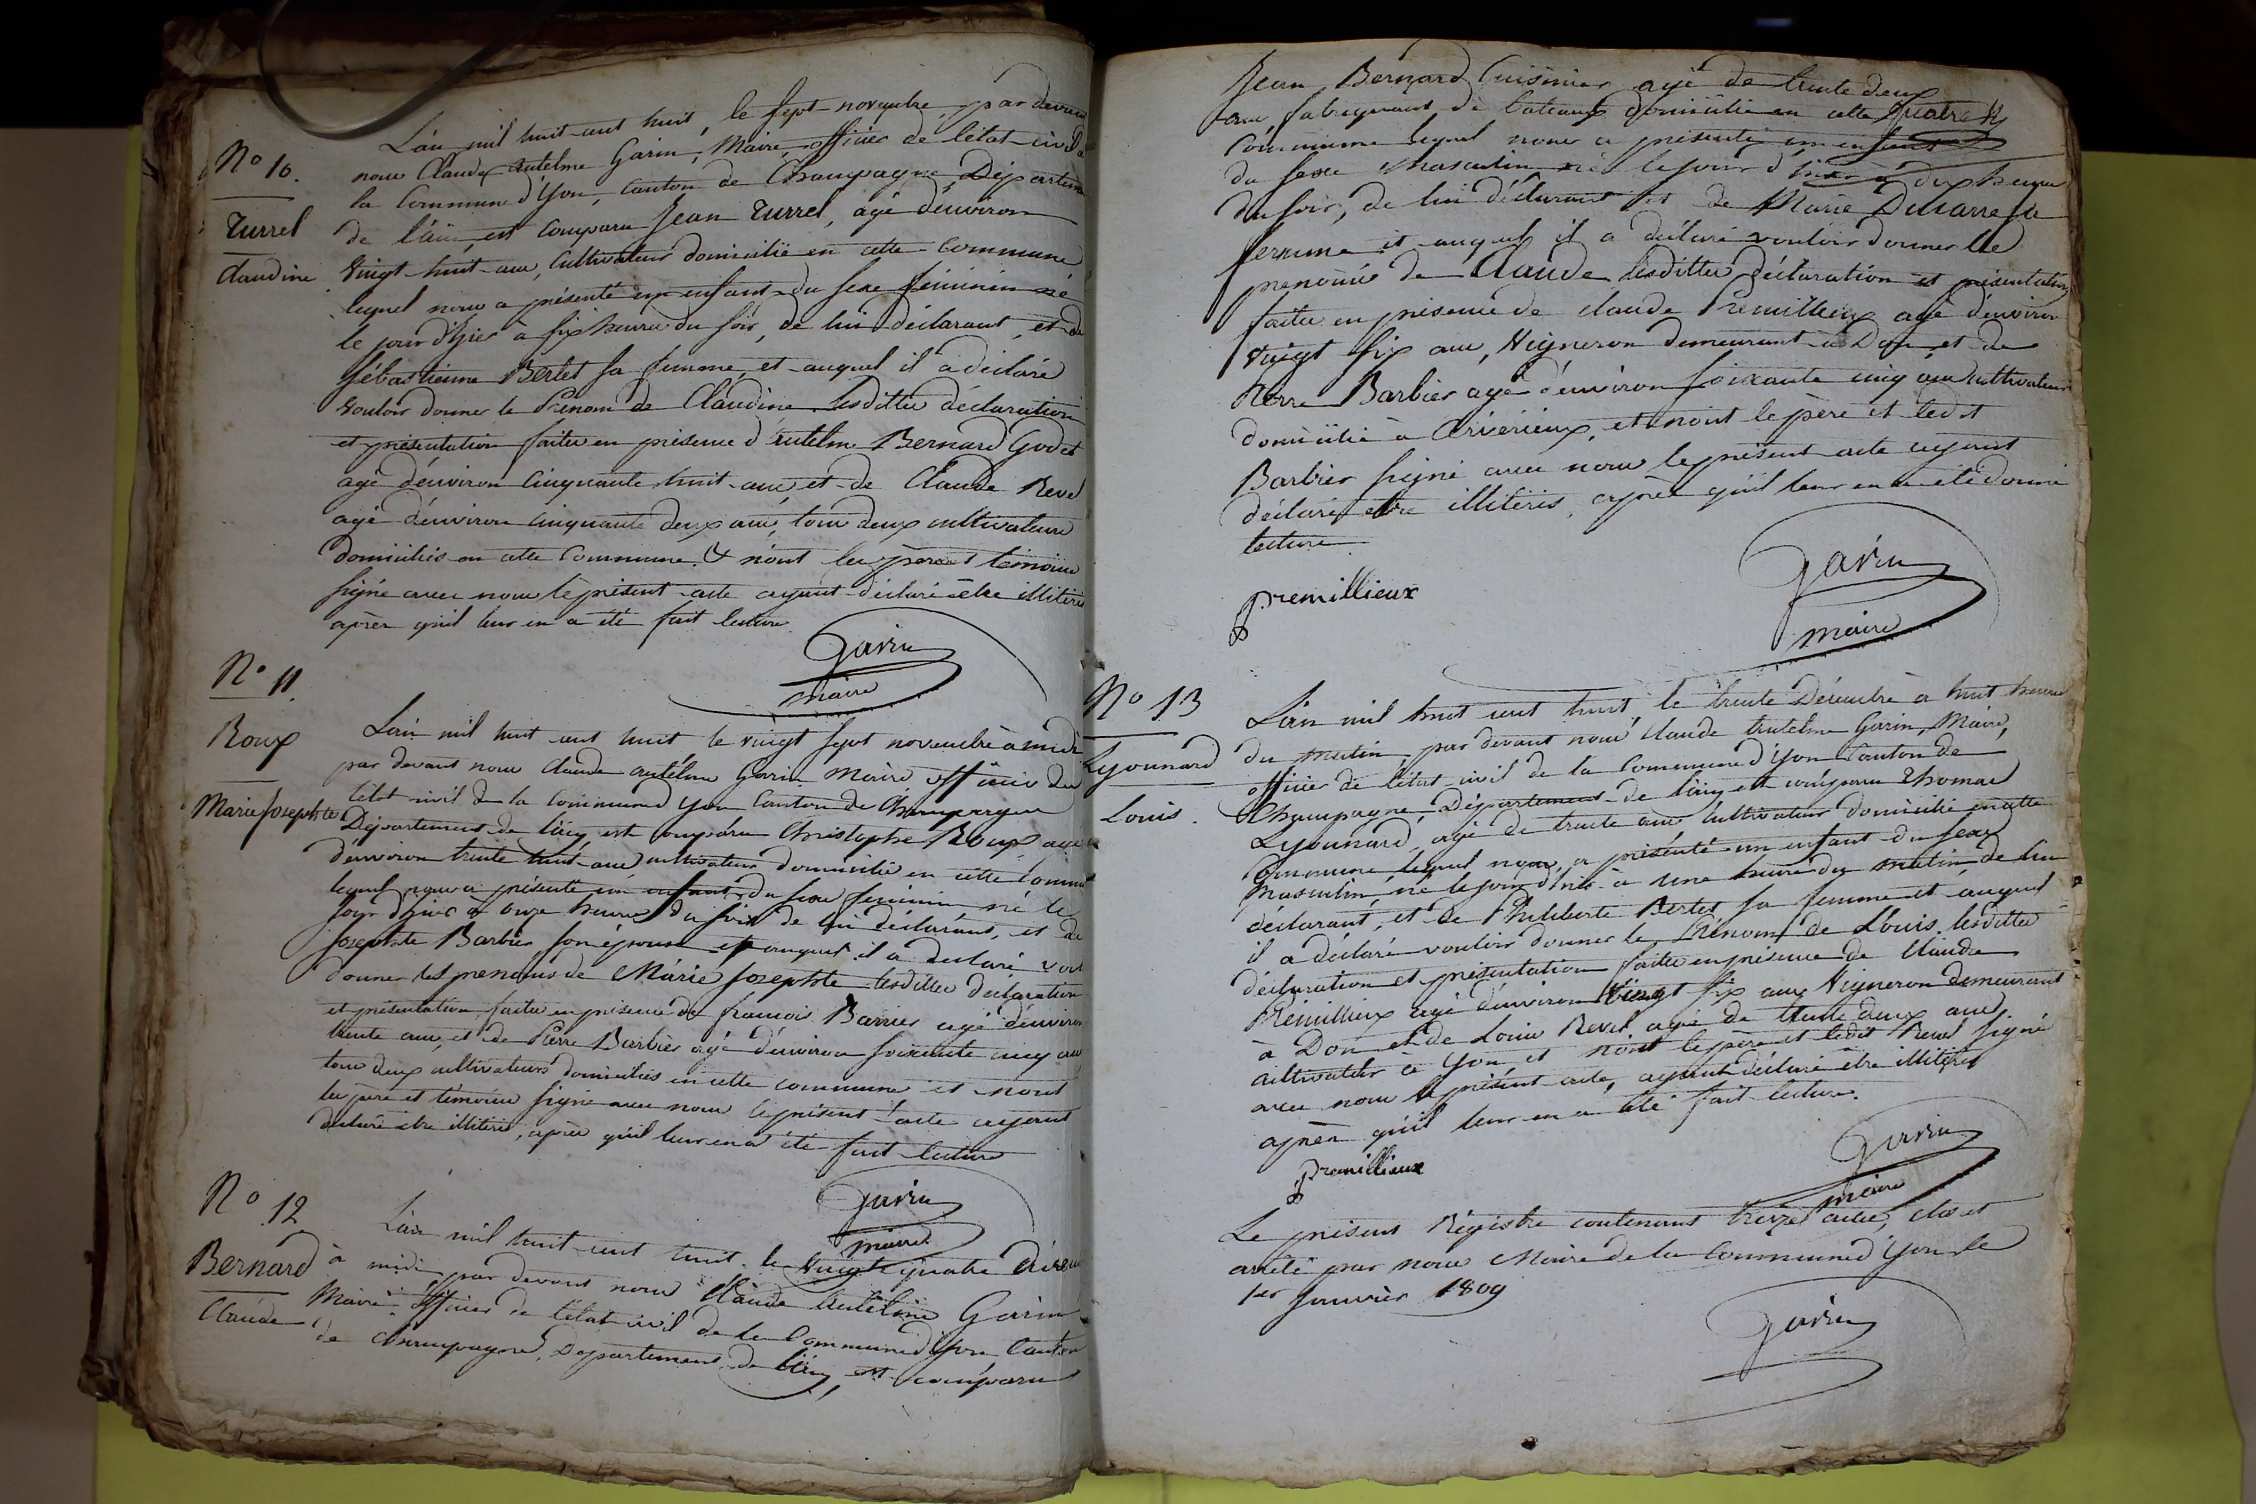 No 10.
Turrel
Claudine
L'an mil huit cent huit, le sept novembre, par devant
nous Claude Antelme Garin, Maire, officier de l'état civil de
la Commune d'Yon, Canton de Champagne, Départem
de l'ain, est Comparu Jean Turrel, agé d'environ
Vingt huit ans, Cultivateur domicilié en cette Commune
lequel nous a présenté un enfant du sexe féminin né
le jour d'hier à six heures du soir, de lui déclarant, et de
Sébastienne Bertet sa femme, et auquel il a déclaré
vouloir donner le Prénom de Claudine. lesdittes déclaration
et présentation faites en présence d'Antelme Bernard Godet
agé d'environ Cinquante huit ans, et de Claude Revel
agé d'environ cinquante deux ans, tous deux cultivateurs
domiciliés en cette Commune. & n'ont les père et témoins
signé avec nous le présent acte ayant déclaré être illitérés
après qu'il leur en a été fait lecture.
Garin
maire
No 11.
Roux
Marie Josephte
L'ain mil huit cent huit le vingt sept novembre à midi
par devant nous Claude antelme Garin Maire officier de
l'état civil de la Commune d'yon Canton de Champagne
Département de l'ain, est comparu Christophe Roux, agé
d'environ trente huit ans cultivateur domicilié en cette Commu
lequel nous a présenté un enfant du sexe féminin né le
jour d'hier à onze heures du soir de lui déclarant, et de
Josephte Barbier son épouse et auquel il a déclaré voul
donner les prenoms de Marie Josephte lesdittes déclaration
et présentation faites en présence de françois Barrier agé d'environ
trente ans, et de Pierre Barbier agé d'environ soixante cinq ans
tous deux cultivateurs domiciliés en cette commune et n'ont
les père et témoins signé avec nous le présent acte ayant
déclaré être illitérés, après qu'il leur en a été fait lecture
Garin
maire
No 12
Bernard
Claude
L'an mil huit cent huit. le Vingt quatre Décem
à midi par devant nous Claude Antelme Garin
Maire officier de l'état civil de la Commune d'Yon Canton
de Champagne, Département de l'ain, est comparu
Jean Bernard Cuisinier agé de trente deux
ans, fabriquant de bateaux domicilié en cette
Commune lequel nous a présenté un enfant
du sexe masculin né le jour d'hier à dix heures
du soir, de lui déclarant et de Marie Ducarre sa
femme et auquel il a déclaré vouloir donner le
prenoms de Claude lesdittes déclaration et présentation
faites en présence de claude Prémillieux agé d'environ
vingt six ans, Vigneron demeurant à Don, et de
Pierre Barbier agé d'environ soixante cinq ans cultivateur
domicilié à Cerveyrieux, et n'ont le père et ledit
Barbier signé avec nous le présent acte ayant
déclaré être illitérés, après qu'il leur en a été donné
lecture
premillieux
Garin
maire
No 13
Lyounard
Louis.
L'an mil huit cent huit, le trente Décembre à huit heures
du matin, par devant nous Claude Antelme Garin, Maire,
officier de l'état civil de la Commune d'Yon Canton de
Champagne, Département de l'ain, est comparu Thomas
Lyounard, agé de trente ans Cultivateur domicilié en cette
Commune lequel nous a présenté un enfant du sexe
masculin, né le jour d'hier à une heure du matin de lui
déclarant, et de Philiberte Bertet sa femme et auquel
il a déclaré vouloir donner le Prénom de Louis. lesdittes
déclaration et présentation faites en présence de Claude
Prémillieux agé d'environ Vingt six ans Vigneron demeurant
à Don et de Louis Revel agé de trente deux ans
cultivateur à Yon, et n'ont le père et ledit Revel signé
avec nous le présent acte, ayant déclaré être illitérés
après qu'il leur en a été fait lecture.
premillieux
Garin
maire
Le présent Régistre contenant treize actes, clos et
arrêté par nous Maire de la Commune d'Yon le
1er Janvier 1809
Garin